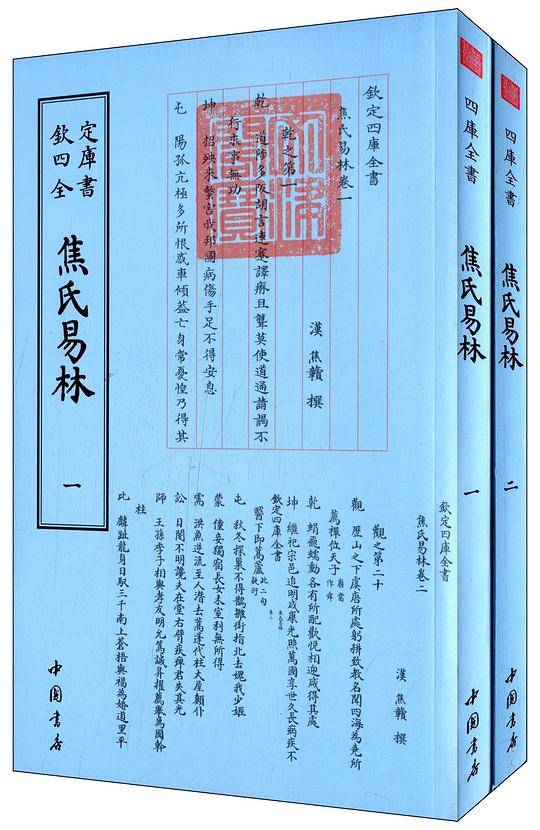 欽定
四庫
全書
焦氏易林
一
中国书店
欽定四庫全書
焦氏易林卷一
漢 焦贛 撰
乾之第一
乾 道陟多阪胡言連蹇譯瘏且聾莫使道通請謁不
行求事無功
坤 招殃來螫害我邦國病傷手足不得安息
屯 陽孤亢極多所恨惑車傾蓋亡身常憂惶乃得其
欽定四庫全書
焦氏易林卷二
漢 焦贛 撰
觀之第二十
觀 歷山之下虞唐所處躬耕致教名聞四海為堯所
薦禪位天子
乾 蜎飛蠕動各有所配歡悅相迎咸得其處
坤 繼祀宗邑追明成康光照萬國享世久長病疾不
欽定四庫全書
醫下即萬蘆 此二句疑衍
屯 秋冬探巢不得鵲雛銜指北去媿我少姬
蒙 僮妾獨宿長女未室利無所得
需 洪魚逆流至人潛去萬蓬代柱大屋顛仆
訟 日闇不明讒夫在堂右臂疾痺君失其光
師 王孫季子相與孝友明允篤誠昇擢薦舉為國幹
柱
比 麟趾龍身日馭三千南上蒼梧與福為婚道里平
四庫全書
焦氏易林
一
中国书店
四庫全書
焦氏易林
二
中国书店